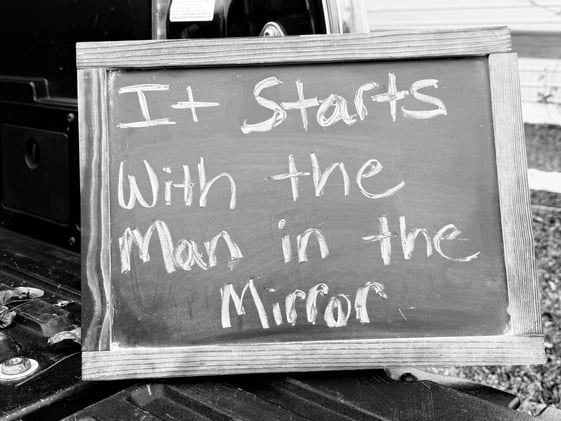 It Starts
With the
Man in the
Mirror